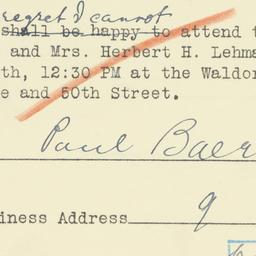 regret I cannot
shall be happy to attend t
and Mrs. Herbert H. Lehma
th, 12:30 PM at the Waldor
e and 50th Street.
Paul Baer
iness Address 9